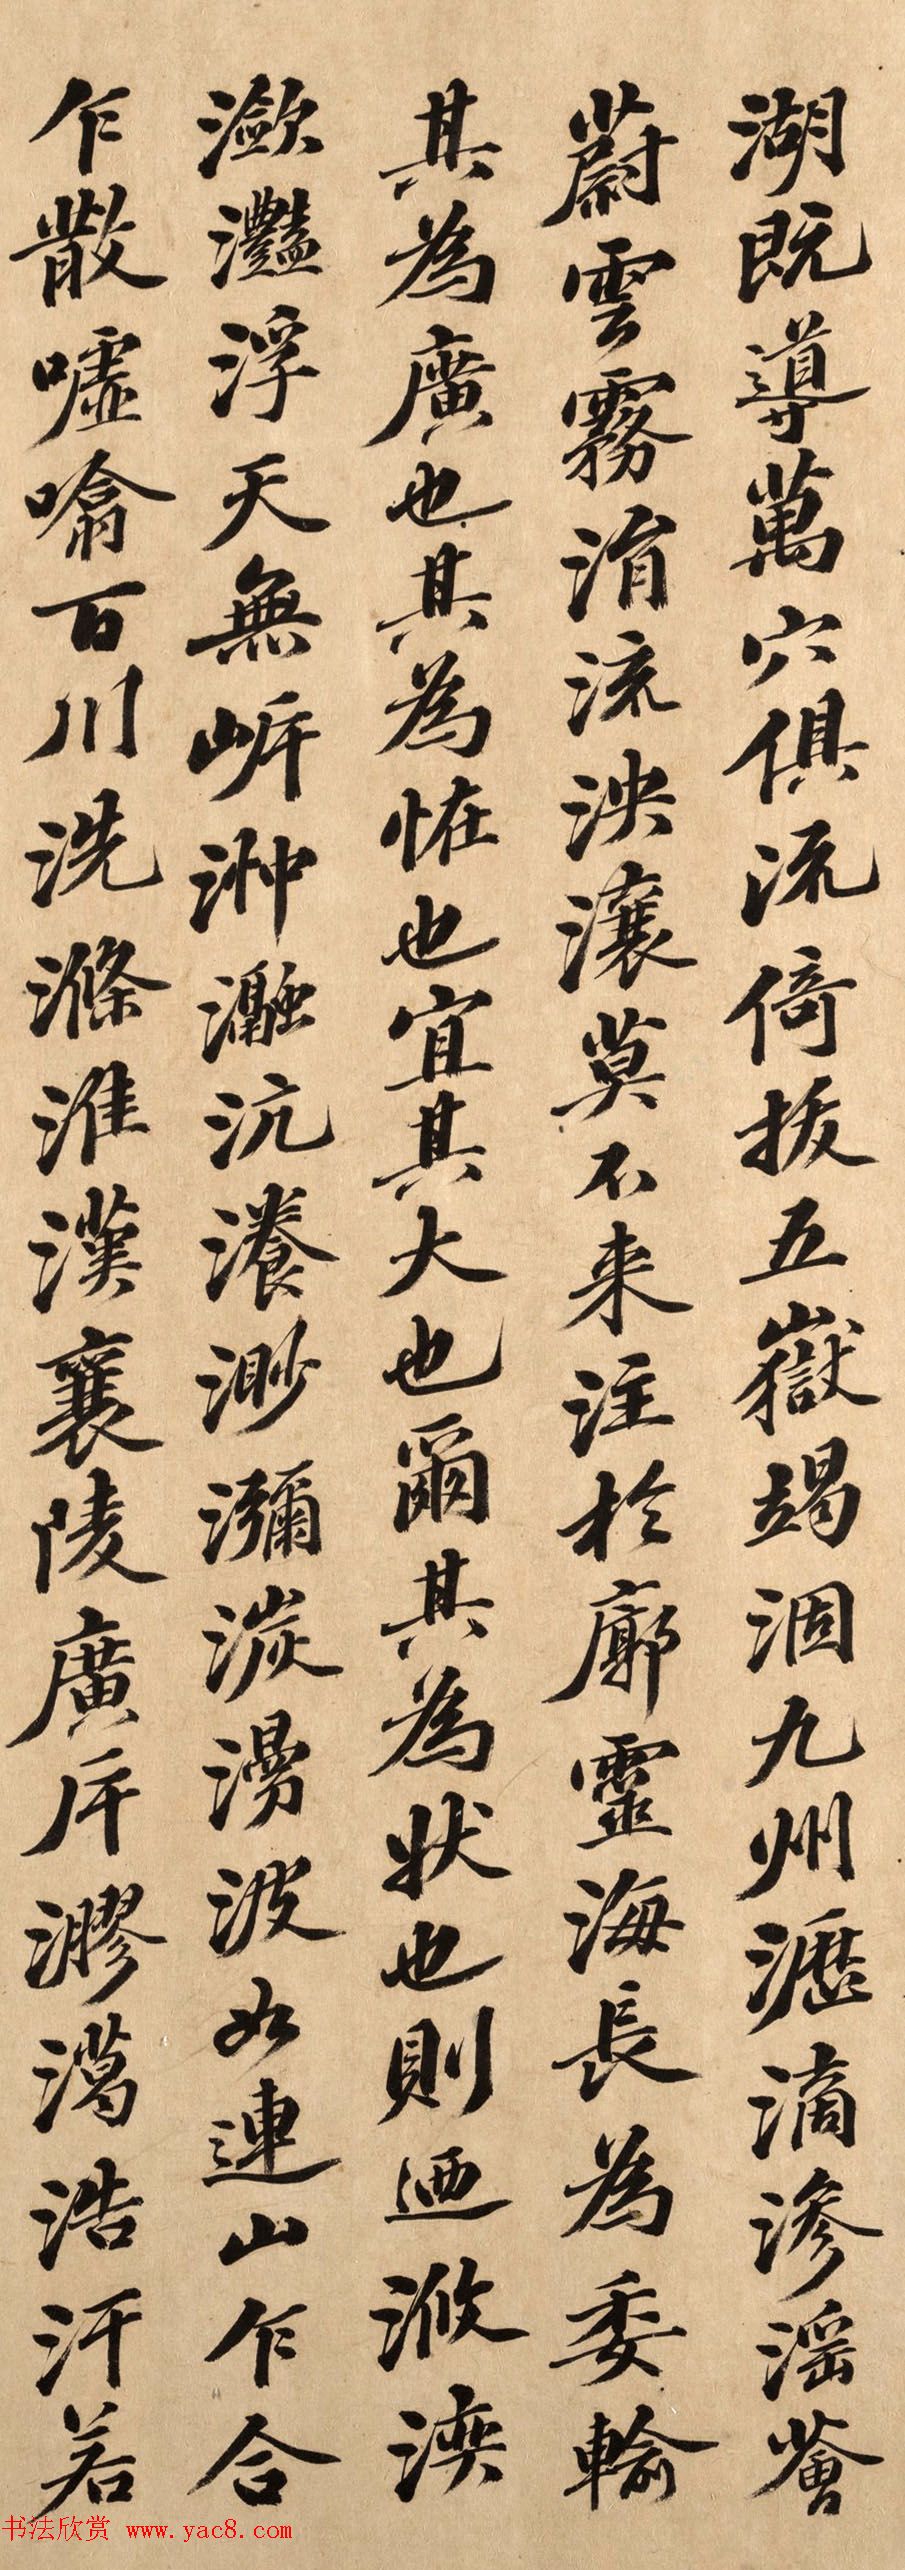 湖既導萬穴俱流倚拔五嶽竭涸九州瀝滴滲淫薈
蔚雲霧涓流泱瀼莫不来注於廓靈海長為委輸
其為廣也其為恠也宜其大也爾其為状也則迺浟湙
瀲灧浮天無岓浺瀜沆瀁渺瀰湠漫波如連山乍合
乍散噓噏百川洗滌淮漢襄陵廣斥漻㵧浩汗若
书法欣赏 www.yac8.com